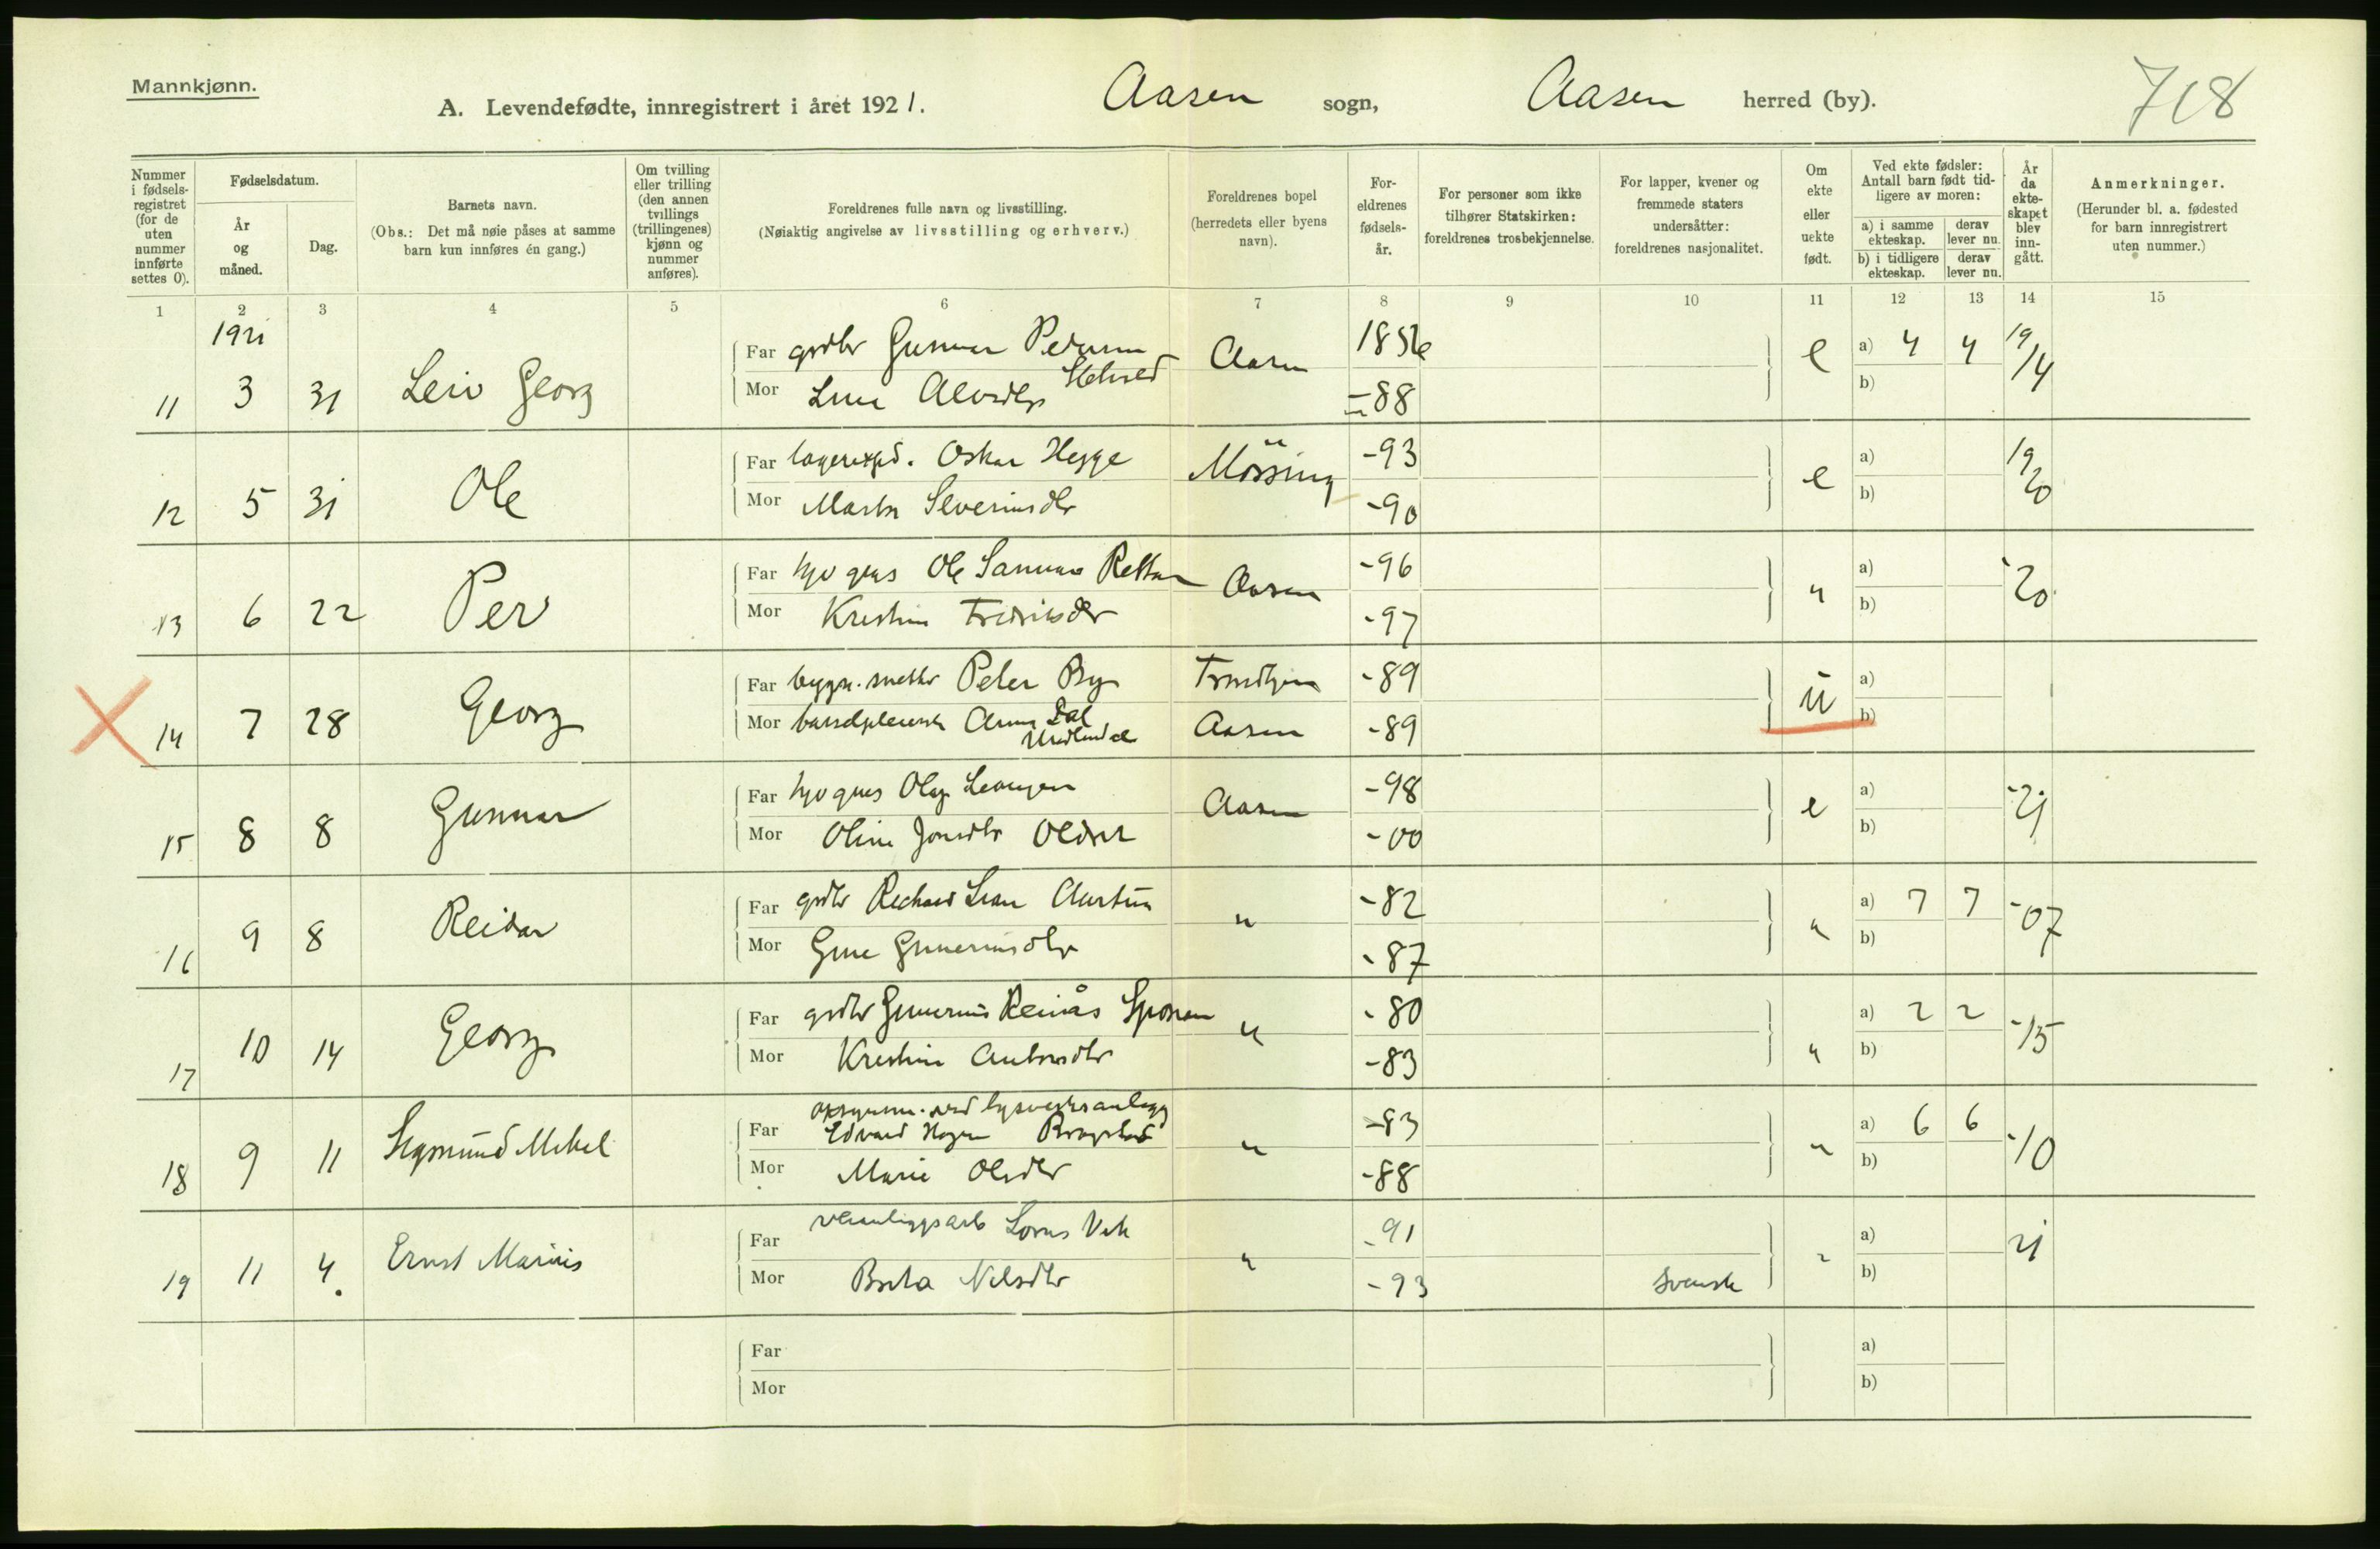 Mannkjønn.
A. Levendefødte, innregistrert i året 1921. Aasen sogn, Aasen herred (by). 718
Nummer i fødsels-registret (for de uten nummer innførte settes 0).
Fødselsdatum.
År og måned.
Dag.
Barnets navn.
(Obs.: Det må nøie påses at samme barn kun innføres én gang.)
Om tvilling eller trilling (den annen tvillings (trillingenes) kjønn og nummer anføres).
Foreldrenes fulle navn og livsstilling.
(Nøiaktig angivelse av livsstilling og erhverv.)
Foreldrenes bopel (herredets eller byens navn).
For-eldrenes fødsels-år.
For personer som ikke tilhører Statskirken: foreldrenes trosbekjennelse.
For lapper, kvener og fremmede staters undersåtter: foreldrenes nasjonalitet.
Om ekte eller uekte født.
Ved ekte fødsler: Antall barn født tid-ligere av moren:
a) i samme ekteskap. derav lever nu.
b) i tidligere ekteskap. derav lever nu.
År da ekte-skapet blev inn-gått.
Anmerkninger.
(Herunder bl. a. fødested for barn innregistrert uten nummer.)
1 2 3 4 5 6 7 8 9 10 11 12 13 14 15
1921
Far grdbr Gunnar Pedersen Aasen 1886 e a) 4 4 19/14
11 3 31 Leiv Georg
Mor -88 b)
Far lagerexpd. Oskar Hegge Mossing -93 e a) 19/20
12 5 31 Ole
Mor Marta Severinsdtr -90 b)
Far Ole Aasen -96 " a) -20
13 6 22 Per
Mor Kristine Fredriksdtr -97 b)
Far bygn. Peter By Trondhjem -89 u a)
14 7 28 Georg
Mor Anna Dal Aasen -89 b)
Far Olaf Aasen -98 e a) -21
15 8 8 Gunnar
Mor Oline Jonsdtr -00 b)
Far grdbr " -82 " a) 7 7 -07
16 9 8 Reidar
Mor -87 b)
Far grdbr Gunerius Reinås " -80 " a) 2 2 -15
17 10 14 Georg
Mor Kristine -83 b)
Far Edvard " -83 " a) 6 6 -10
18 9 11 Sigmund Mikal
Mor Marie Olsdtr -88 b)
Far " -91 " a) 21
19 11 4. Ernst Marius
Mor Brita Nilsdtr -93 svensk b)
Far a)
Mor b)